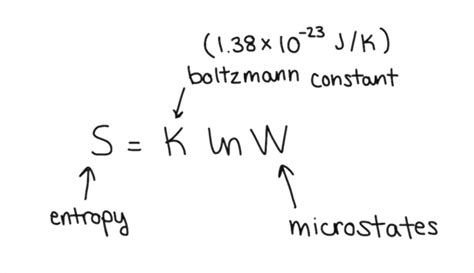 (1.38 × 10⁻²³ J/K)
boltzmann constant
S = K ln W
entropy
microstates